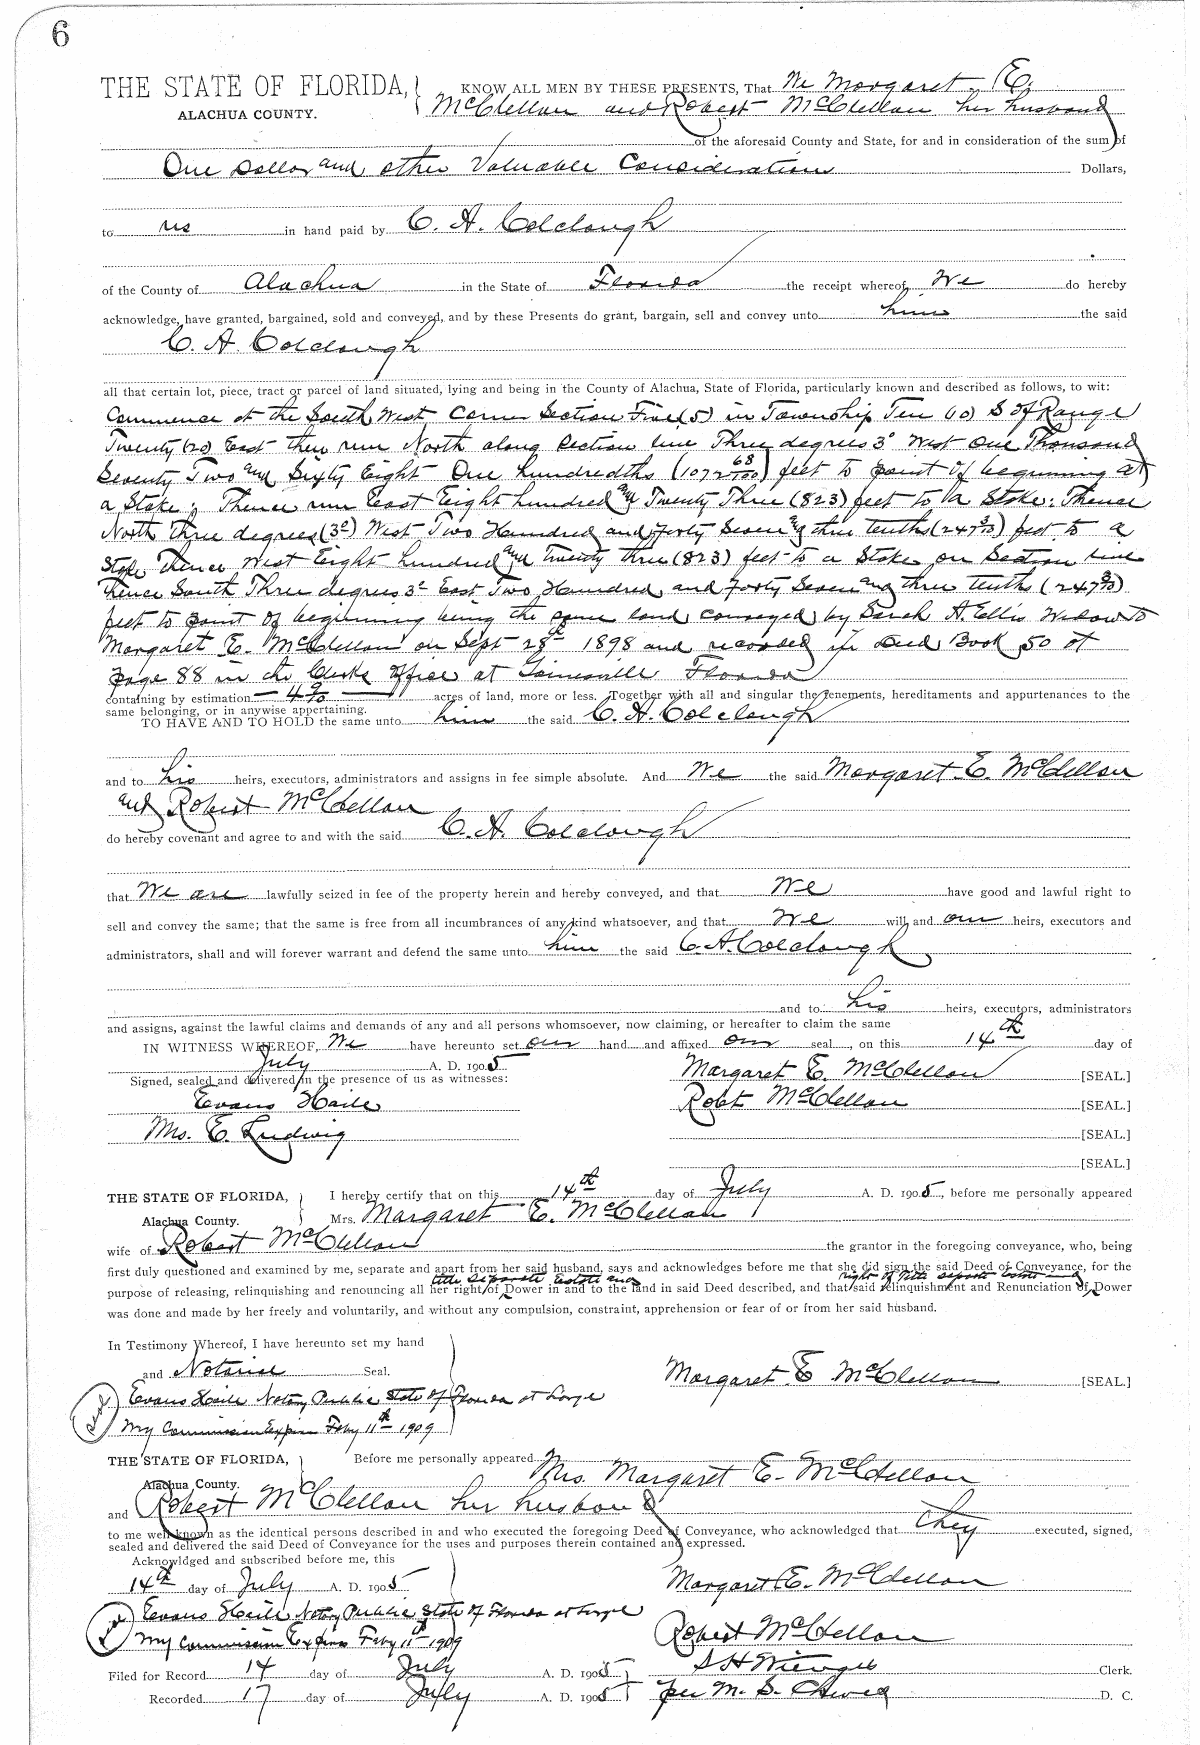 6
THE STATE OF FLORIDA, KNOW ALL MEN BY THESE PRESENTS, That We Margaret E.
ALACHUA COUNTY. McClellan and Robert McClellan her husband
of the aforesaid County and State, for and in consideration of the sum of
One Dollar and other Valuable Consideration Dollars,
to us in hand paid by C. A. Colclough
of the County of Alachua in the State of Florida the receipt whereof We do hereby
acknowledge, have granted, bargained, sold and conveyed, and by these Presents do grant, bargain, sell and convey unto him the said
C. A. Colclough
all that certain lot, piece, tract or parcel of land situated, lying and being in the County of Alachua, State of Florida, particularly known and described as follows, to wit:
Commence at the South West Corner Section Five (5) in Township Ten (10) S of Range
Twenty (20) East then run North along Section line Three degrees 3° West One Thousand
Seventy Two and Sixty Eight One hundredths (1072 68/100) feet to point of beginning at
a Stake; Thence run East Eight hundred and Twenty Three (823) feet to a Stake: Thence
North three degrees (3°) West Two Hundred and forty Seven and three tenths (247 3/10) feet to a
Stake Thence West Eight hundred and twenty three (823) feet to a Stake on Section line
Thence South Three degrees 3° East Two Hundred and forty Seven and three tenth (247 3/10)
feet to point of beginning being the same land conveyed by Sarah A. Ellis Widow to
Margaret E. McClellan on Sept 28th 1898 and recorded in Deed Book 50 at
page 88 in the Clerks office at Gainesville Florida
containing by estimation acres of land, more or less. Together with all and singular the tenements, hereditaments and appurtenances to the
same belonging, or in anywise appertaining.
TO HAVE AND TO HOLD the same unto him the said C. A. Colclough
and to his heirs, executors, administrators and assigns in fee simple absolute. And We the said Margaret E. McClellan
and Robert McClellan
do hereby covenant and agree to and with the said C. A. Colclough
that We are lawfully seized in fee of the property herein and hereby conveyed, and that We have good and lawful right to
sell and convey the same; that the same is free from all incumbrances of any kind whatsoever, and that We will and our heirs, executors and
administrators, shall and will forever warrant and defend the same unto him the said C. A. Colclough
and to his heirs, executors, administrators
and assigns, against the lawful claims and demands of any and all persons whomsoever, now claiming, or hereafter to claim the same
IN WITNESS WHEREOF, We have hereunto set our hand and affixed our seal, on this 14th day of
July A. D. 1905 Margaret E. McClellan [SEAL.]
Signed, sealed and delivered in the presence of us as witnesses:
Evans Haile Robt McClellan [SEAL.]
Mrs. E. Ludwig [SEAL.]
[SEAL.]
THE STATE OF FLORIDA, I hereby certify that on this 14th day of July A. D. 1905, before me personally appeared
Alachua County. Mrs. Margaret E. McClellan
wife of Robert McClellan the grantor in the foregoing conveyance, who, being
first duly questioned and examined by me, separate and apart from her said husband, says and acknowledges before me that she did sign the said Deed of Conveyance, for the
title separate Estate and right of title separate Estate and
purpose of releasing, relinquishing and renouncing all her right of Dower in and to the land in said Deed described, and that said relinquishment and Renunciation of Dower
was done and made by her freely and voluntarily, and without any compulsion, constraint, apprehension or fear of or from her said husband.
In Testimony Whereof, I have hereunto set my hand
and Notarial Seal. Margaret E McClellan [SEAL.]
Evans Haile Notary Public State of Florida at Large
My Commission Expires Feby 11th 1909
THE STATE OF FLORIDA, Before me personally appeared Mrs. Margaret E. McClellan
Alachua County.
and Robert McClellan her husband
to me well known as the identical persons described in and who executed the foregoing Deed of Conveyance, who acknowledged that they executed, signed,
sealed and delivered the said Deed of Conveyance for the uses and purposes therein contained and expressed.
Acknowldged and subscribed before me, this
14th day of July A. D. 1905 Margaret E. McClellan
Evans Haile Notary Public State of Florida at Large
My Commission Expires Feby 11th 1909 Robert McClellan
Filed for Record 14 day of July A. D. 1905 S H Wienges Clerk.
Recorded 17 day of July A. D. 1905 per M. S. D. C.